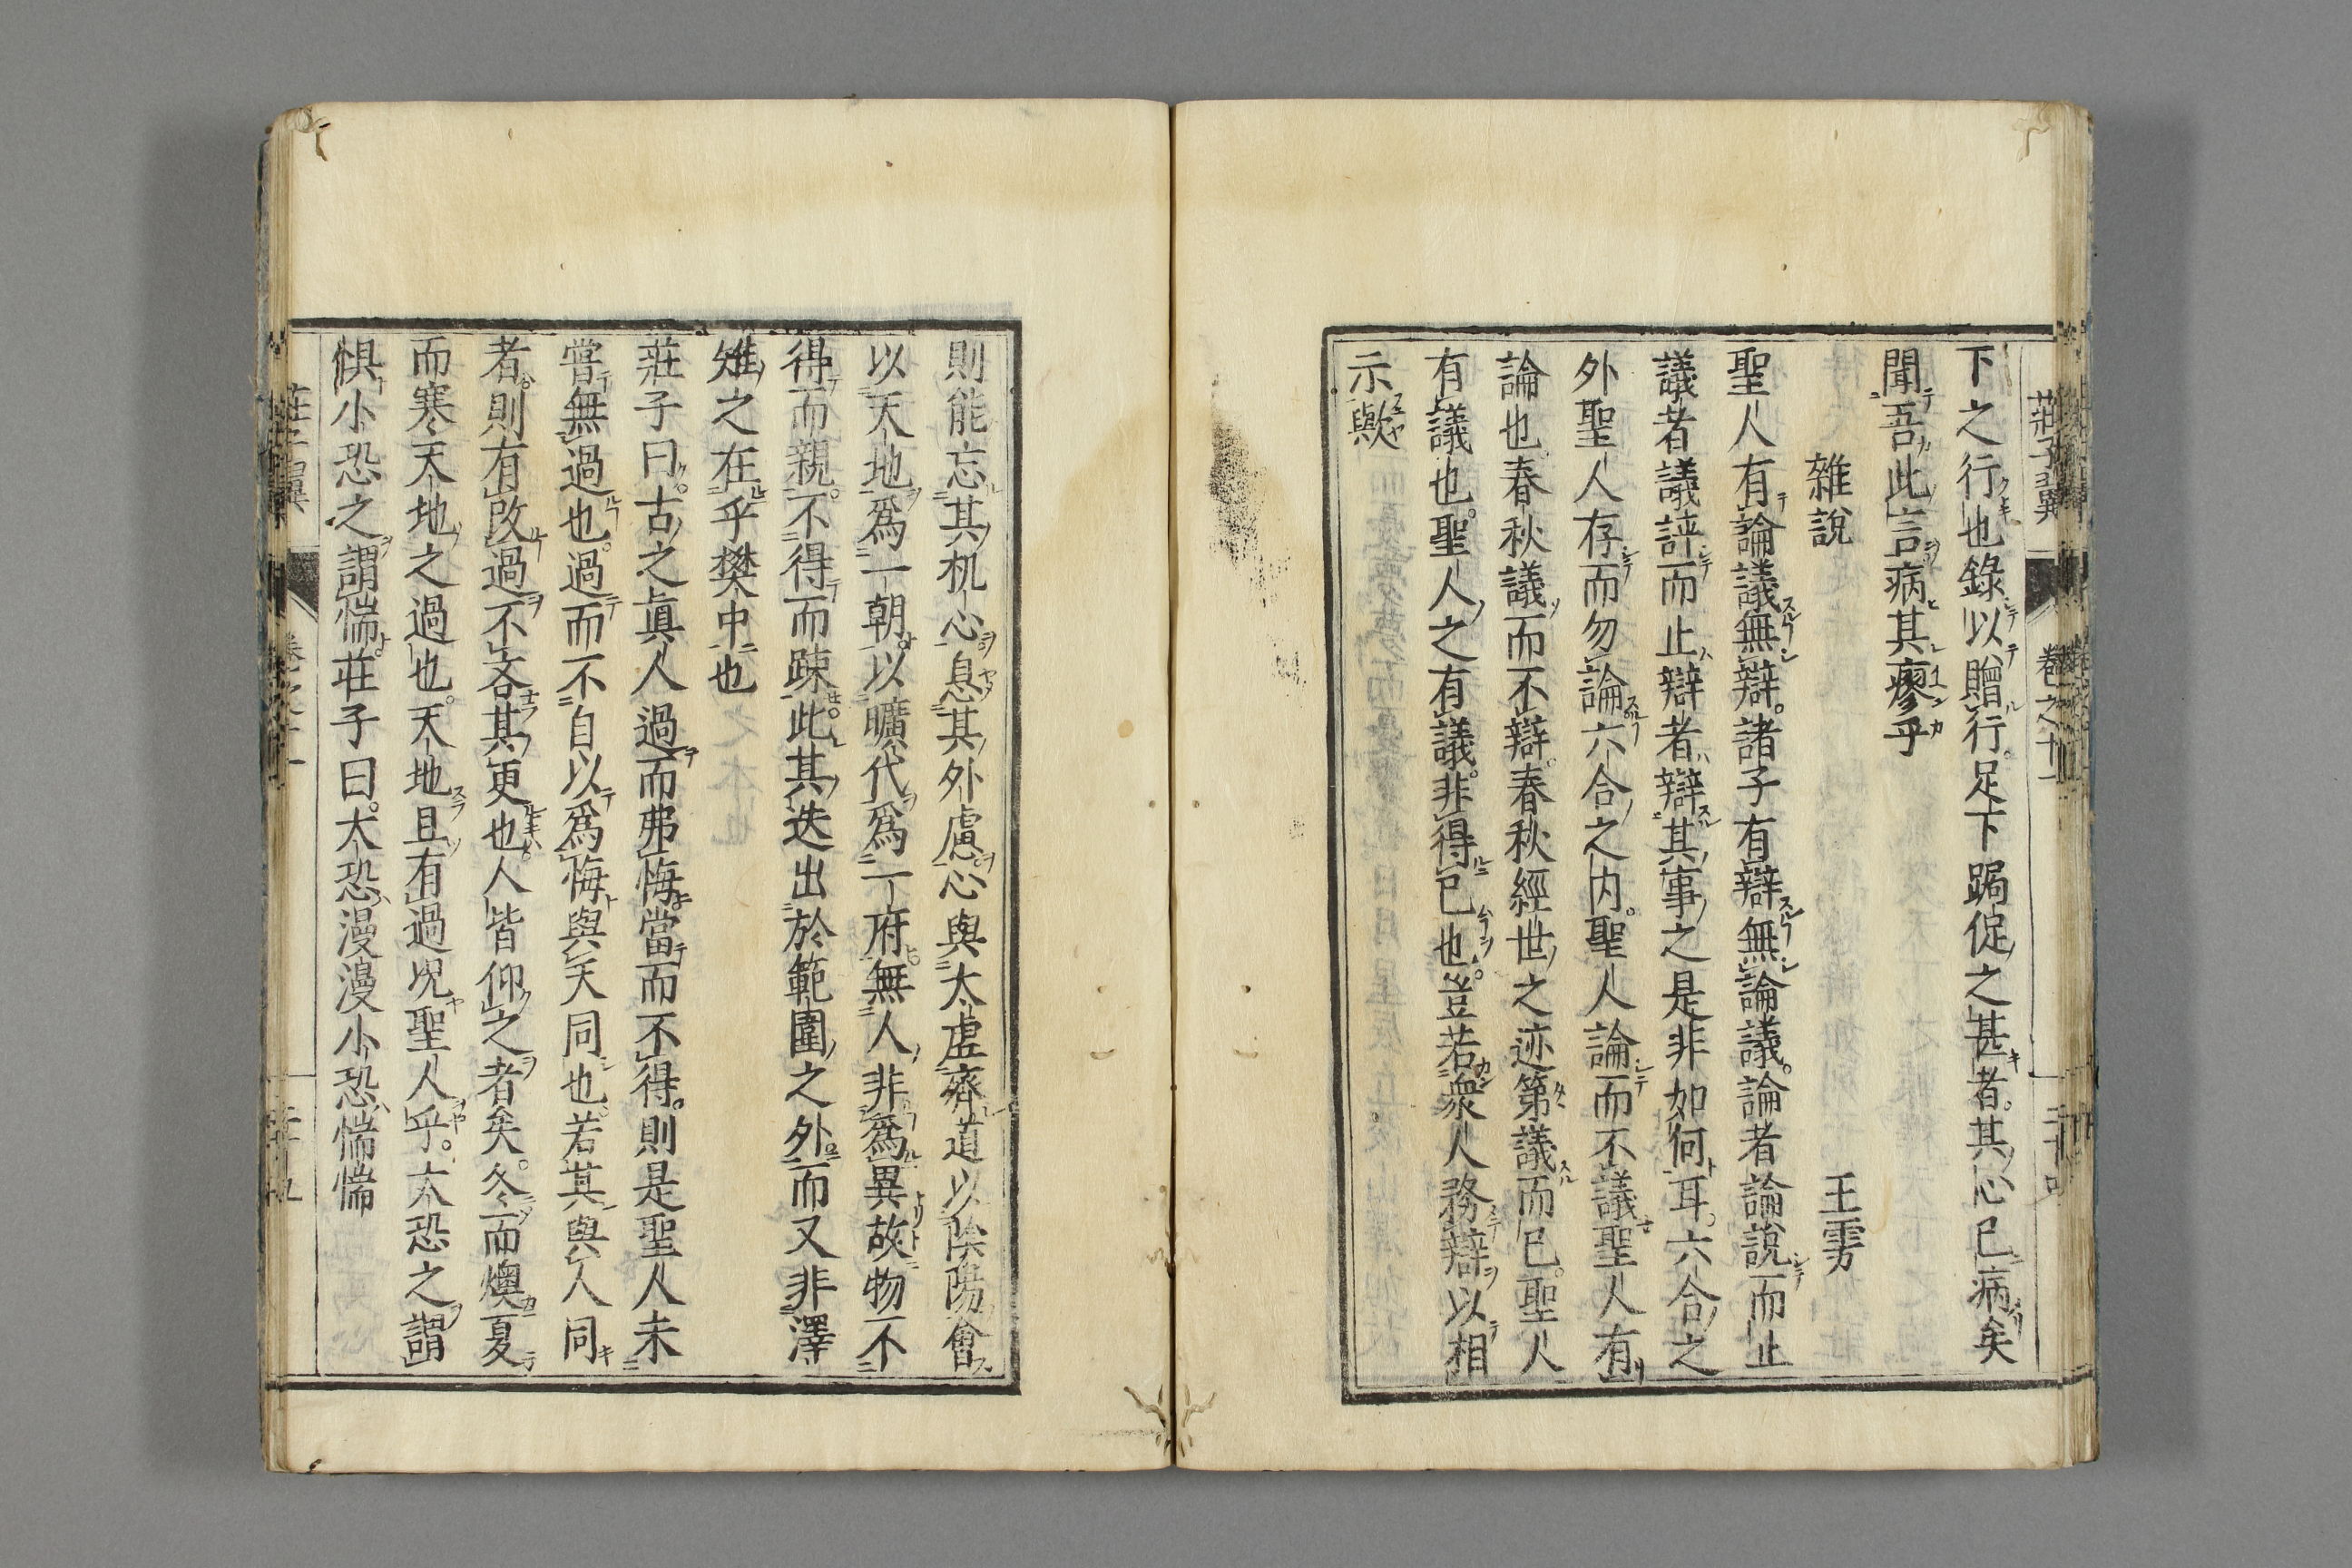 下之行也錄以贈行足下跼促之甚者其心已病矣
聞吾此言病其廖乎
雜說
王雱
聖人有論議無辯諸子有辯無論議論者論說而止
議者議評而止辯者辯其事之是非如何耳六合之
外聖人存而勿論六合之内聖人論而不議聖人有
論也春秋議而不辯春秋經世之迹第議而已聖人
有議也聖人之有議非得已也豈若衆人務辯以相
示歟
則能忘其机心息其外慮心與太虛齊道以陰陽會
以天地爲一朝以曠代爲一府無人非爲異故物不
得而親不得而踈此其迭出於範圍之外而又非澤
雉之在乎樊中也
莊子曰古之眞人過而弗悔當而不得則是聖人未
嘗無過也過而不自以爲悔與天同也若其與人同
者則有改過不吝其更也人皆仰之者矣冬而燠夏
而寒天地之過也天地且有過况聖人乎大恐之謂
惧小恐之謂惴莊子曰大恐漫漫小恐惴惴
莊子翼
卷之十一